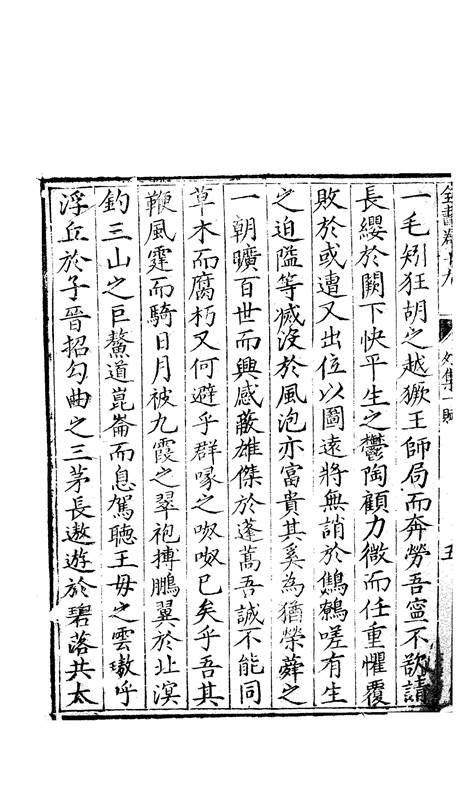 全書卷之十九　外集一賦　五
一毛矧狂胡之越獗王師局而奔勞吾寧不欲請
長纓於闕下快平生之鬱陶顧力微而任重懼覆
敗於或遭又出位以圖遠將無誚於鷦鷯嗟有生
之迫隘等滅沒於風泡亦富貴其奚為猶榮蕣之
一朝曠百世而興感蔽雄傑於蓬蒿吾誠不能同
草木而腐朽又何避乎群喙之呶呶已矣乎吾其
鞭風霆而騎日月被九霞之翠袍摶鵬翼於北溟
釣三山之巨鰲道崑崙而息駕聽王毋之雲璈呼
浮丘於子晉招勾曲之三茅長遨遊於碧落共太